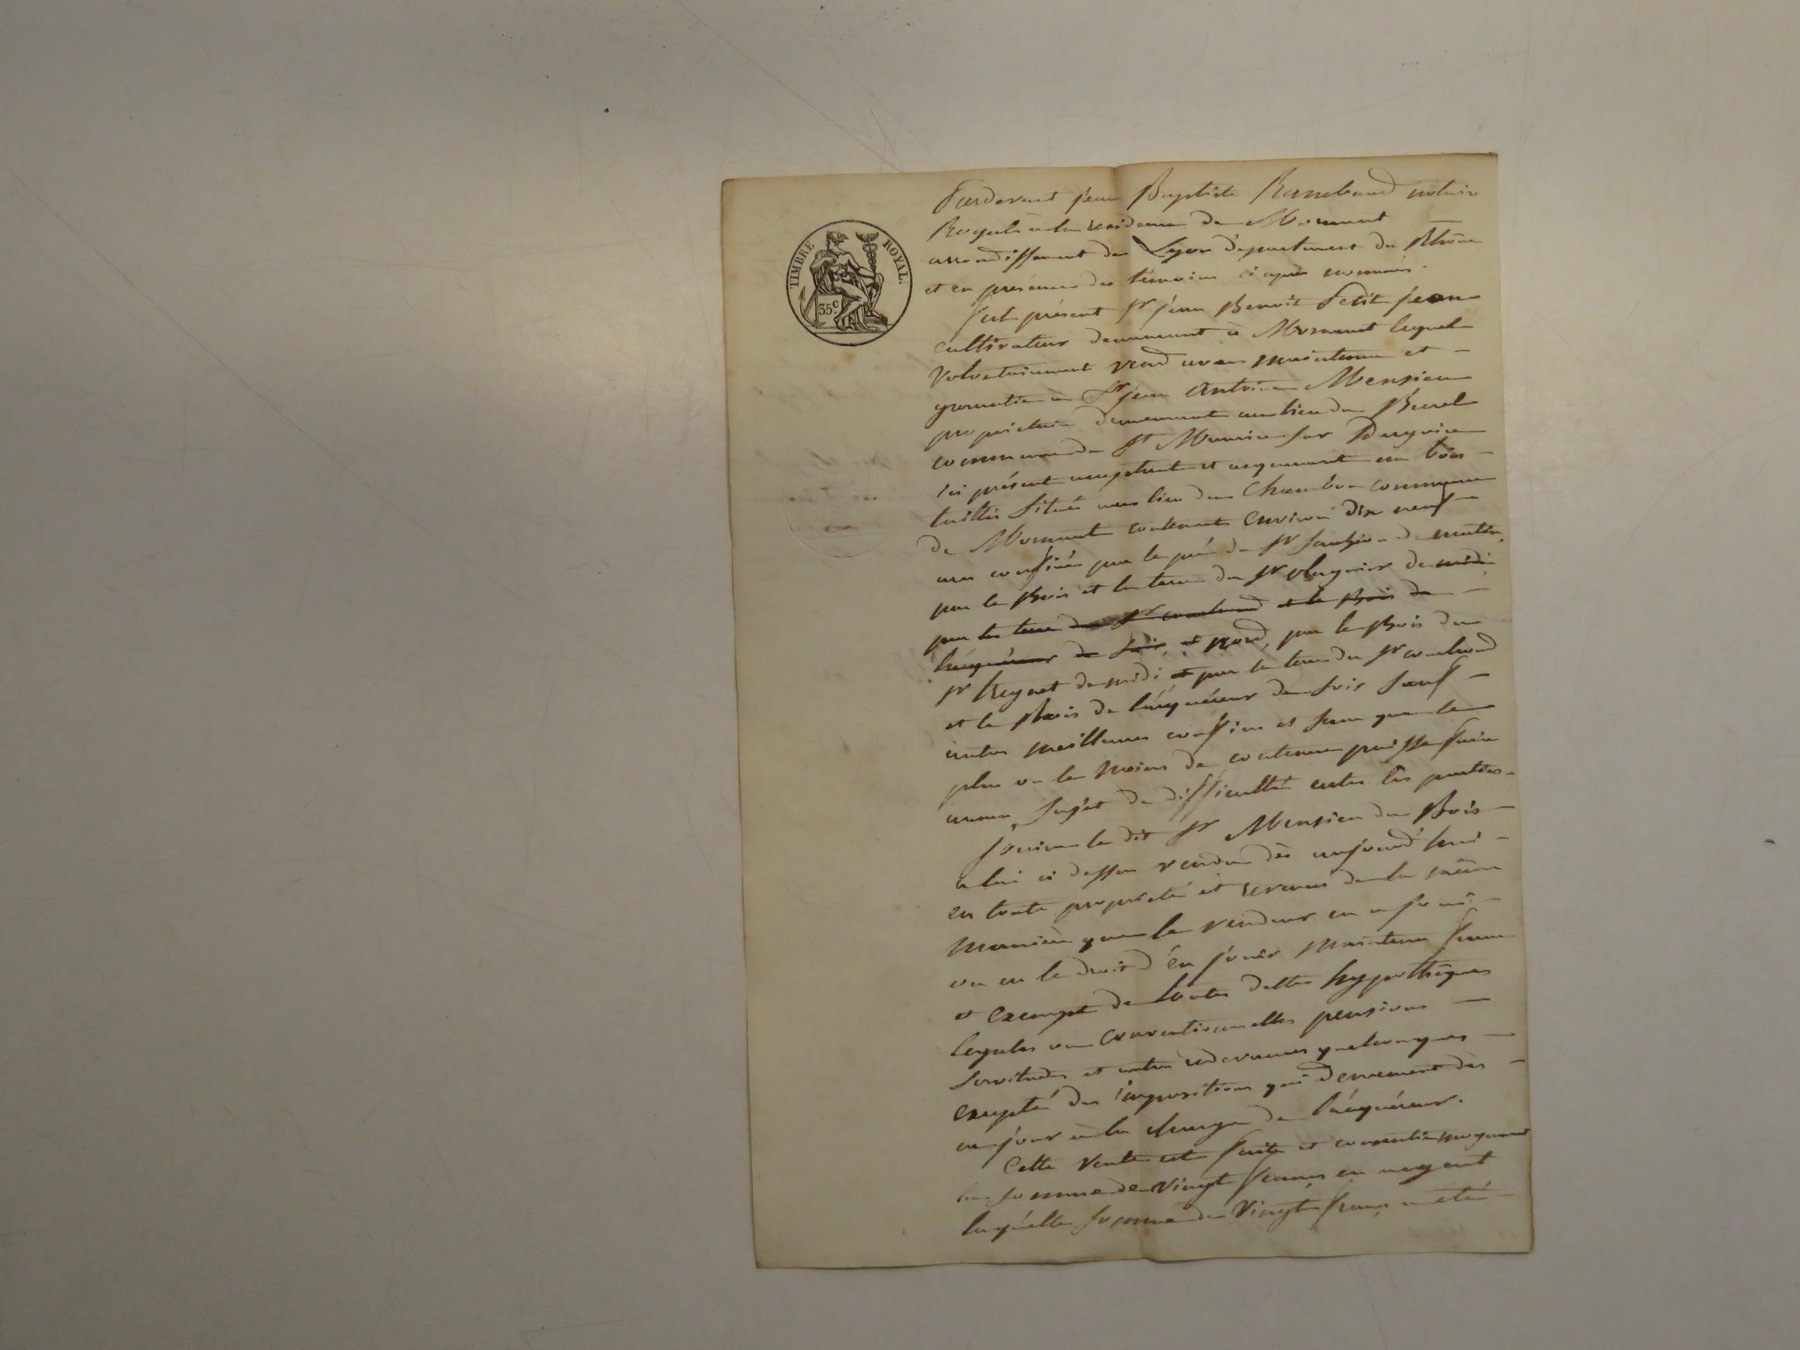 TIMBRE ROYAL.
35 c.
Pardevant jean Baptiste Rambaud notaire
Royal à la residence de Mornant
arrondissement de Lyon departement du Rhône
et en présence des temoins ci après nommés.
fut présent Sr jean Benoit Petit jean
cultivateur demeurant à Mornant lequel
volontairement vend avec maintenue et
garantie à Sr jean Antoine
proprietaire demeurant au lieu du
commune de St Maurice sur Dargoire
ici présent acceptant et acquerant un bois
taillis situé au lieu du Chambon commune
de Mornant contenant environ dix neuf
ares confinés par le pré du Sr de matin,
par le Bois et la terre du Sr de midi
par la terre du Sr et le Bois de
l'acquéreur de soir, et nord, par le Bois du
Sr de midi et par la terre du Sr
et le Bois de l'acquéreur de soir sauf
autres meilleurs confins et sans que le
plus ou le moins de contenue puisse faire
aucun sujet de difficulté entre les parties
jouira le dit Sr du Bois
a lui ci dessus vendu dès aujourd'hui
en toute propriété et de la même
manière que le vendeur en a joui
ou eu le droit d'en jouir maintenu franc
et exempt de toutes dettes hypothèques
legales ou conventionnelles pensions
servitudes et autres redevances quelconques
excepté des impositions qui demeurent dès
ce jour à la charge de l'acquéreur.
Cette vente est faite et consentie moyennant
la somme de vingt francs en argent
laquelle somme de vingt francs a été